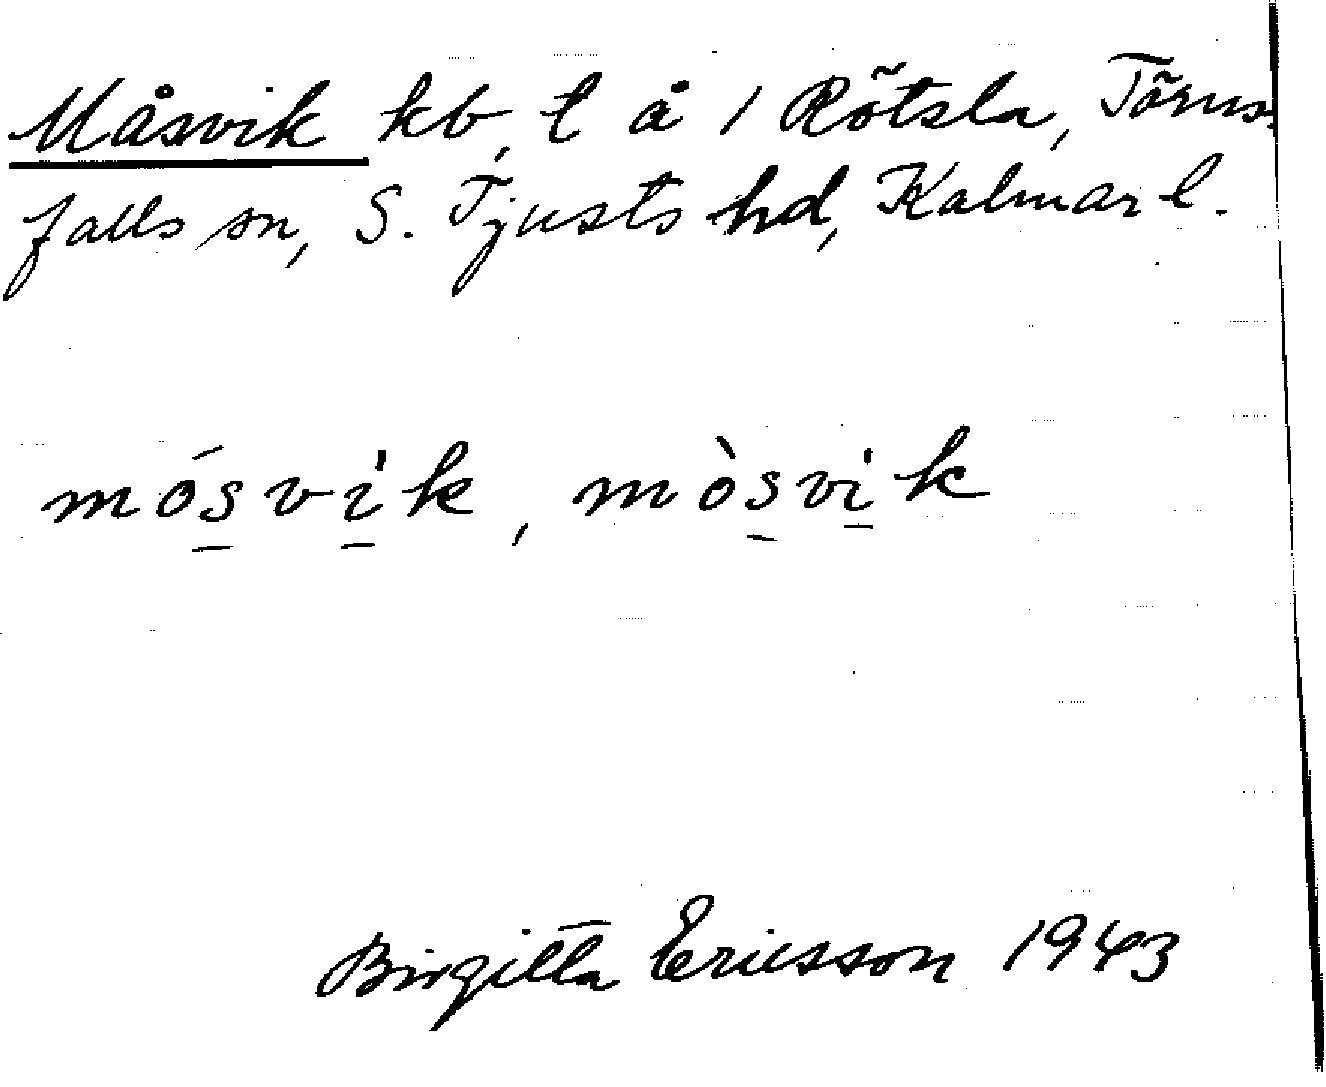 Måsvik kb, t å 1 Rötsla, Törns-
falls sn, S. Tjusts hd, Kalmar l.
mósvìk, mòsvik
Birgitta Ericsson 1943